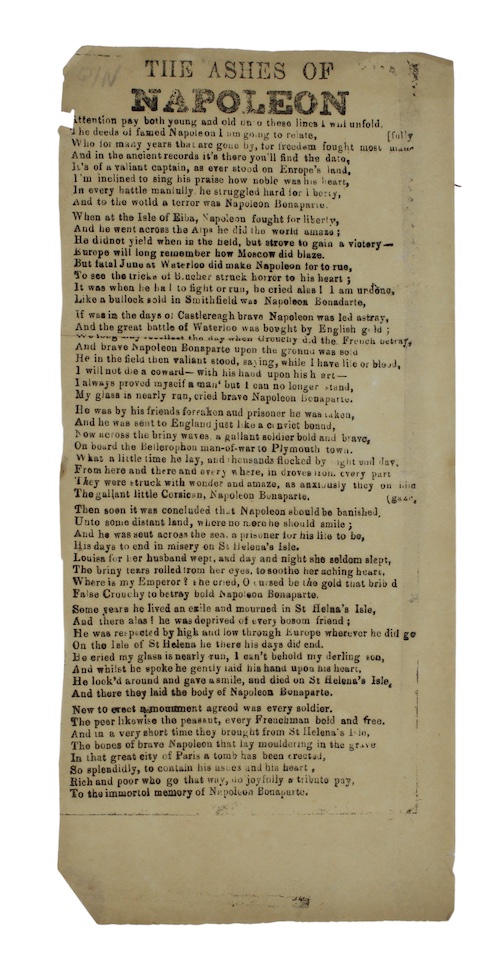 THE ASHES OF
NAPOLEON
Attention pay both young and old unto these lines I will unfold,
The deeds of famed Napoleon I am going to relate, [fully
Who for many years that are gone by, for freedom fought most man
And in the ancient records it's there you'll find the date,
It's of a valiant captain, as ever stood on Enrope's land,
I'm inclined to sing his praise how noble was his heart,
In every battle manfully he struggled hard for liberty,
And to the wotld a terror was Napoleon Bonaparte.
When at the Isle of Elba, Napoleon fought for liberty,
And he went across the Alps he did the world amaze;
He didnot yield when in the field, but strove to gain a victory—
Europe will long remember how Moscow did blaze.
But fatal June at Waterloo did make Napoleon for to rue,
To see the tricks of Blucher struck horror to his heart;
It was when he had to fight or run, he cried alas! I am undone,
Like a bullock sold in Smithfield was Napoleon Bonadarte,
If was in the days of Castlereagh brave Napoleon was led astray,
And the great battle of Waterloo was bought by English gold;
We long may recollect the day when Grouchy did the French betray,
And brave Napoleon Bonaparte upon the ground was sold
He in the field then valiant stood, saying, while I have life or blood,
I will not die a coward—with his hand upon his heart—
I always proved myself a man' but I can no longer stand,
My glass is nearly run, cried brave Napoleon Bonaparte.
He was by his friends forsaken and prisoner he was taken,
And he was sent to England just like a convict bound,
Now across the briny waves, a gallant soldier bold and brave,
On board the Bellerophon man-of-war to Plymouth town.
What a little time he lay, and thousands flocked by night and day,
From here and there and every where, in droves from every part
They were struck with wonder and amaze, as anxiously they on him
The gallant little Corsican, Napoleon Bonaparte. (gaze,
Then soon it was concluded that Napoleon should be banished,
Unto some distant land, where no more he should smile;
And he was sent across the sea, a prisoner for his life to be,
His days to end in misery on St Helena's Isle.
Louisa for her husband wept, and day and night she seldom slept,
The briny tears rolled from her eyes, to soothe her aching heart,
Where is my Emperor? she cried, O cursed be the gold that bribd
False Crouchy to betray bold Napoleon Bonaparte.
Some years he lived an exile and mourned in St Helna's Isle,
And there alas! he was deprived of every bosom friend;
He was respected by high and low through Europe wherever he did go
On the Isle of St Helena he there his days did end.
He cried my glass is nearly run, I can't behold my derling son,
And whilst he spoke he gently laid his hand upon his heart,
He look'd around and gave a smile, and died on St Helena's Isle,
And there they laid the body of Napoleon Bonaparte.
New to erect a monument agreed was every soldier.
The peer likewise the peasant, every Frenchman bold and free.
And in a very short time they brought from St Helena's Isle,
The bones of brave Napoleon that lay mouldering in the grave
In that great city of Paris a tomb has been erected,
So splendidly, to contain his ashes and his heart,
Rich and poor who go that way, do joyfully a tribute pay,
To the immortol memory of Napoleon Bonaparte.